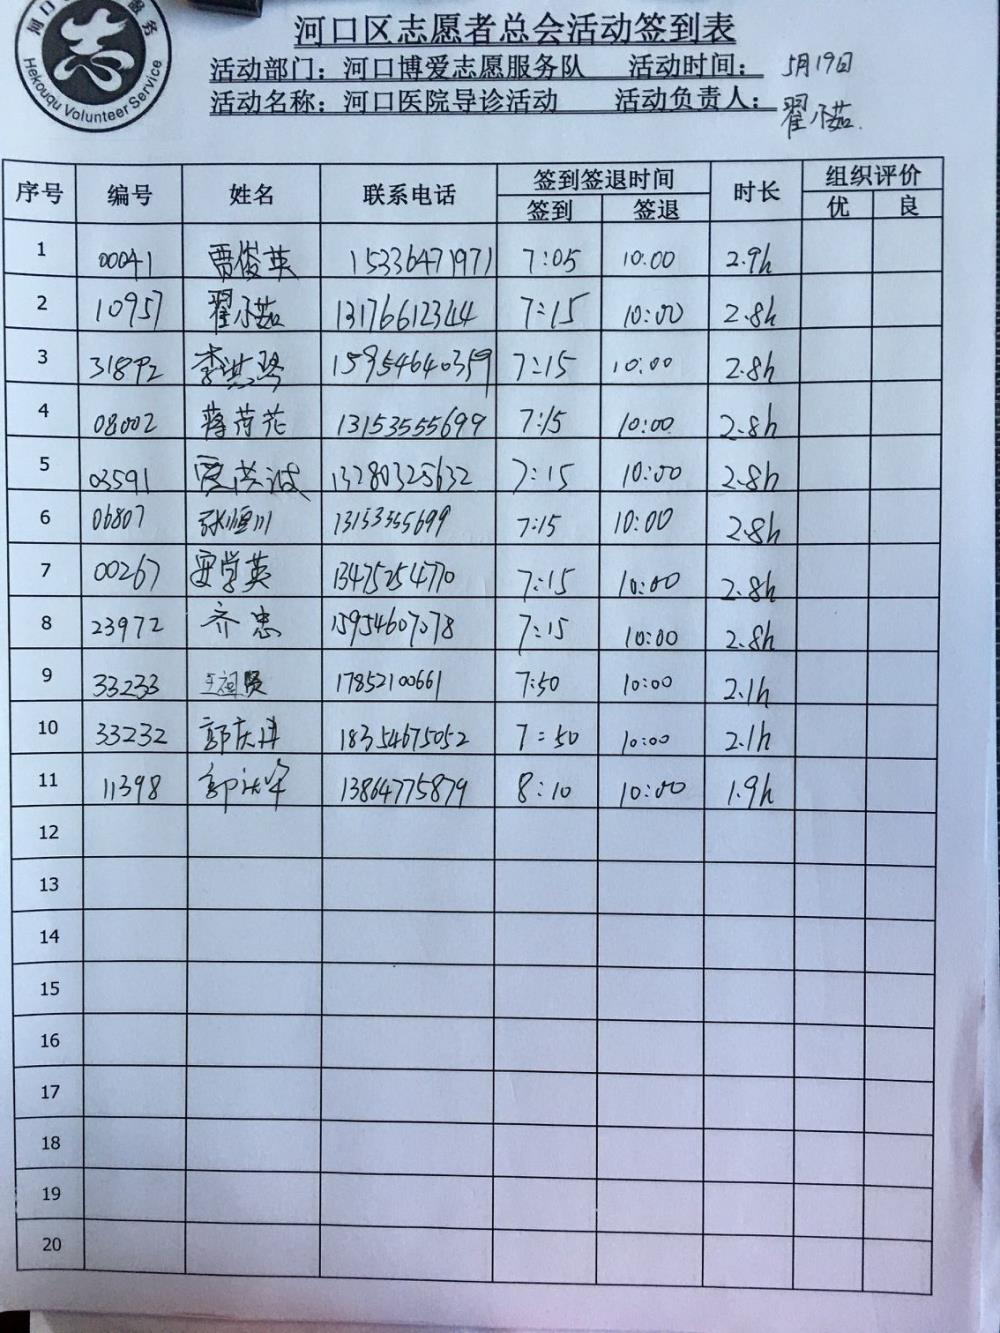 志
Hekouqu Volunteer Service
河口区志愿者总会活动签到表
活动部门：河口博爱志愿服务队 活动时间： 5月19日
活动名称：河口医院导诊活动 活动负责人： 翟小茹
序号 编号 姓名 联系电话 签到签退时间 时长 组织评价
签到 签退 优 良
1 00041 贾俊英 15336471971 7:05 10:00 2.9h
2 10957 翟小茹 13176612344 7:15 10:00 2.8h
3 31892 李洪琴 15954640359 7:15 10:00 2.8h
4 08002 蒋荷花 13153555699 7:15 10:00 2.8h
5 03591 贾洪波 13280325632 7:15 10:00 2.8h
6 06807 张恒川 13153555699 7:15 10:00 2.8h
7 00267 要学英 13475254770 7:15 10:00 2.8h
8 23972 齐忠 15954607078 7:15 10:00 2.8h
9 33233 17852100661 7:50 10:00 2.1h
10 33232 18354675052 7:50 10:00 2.1h
11 11398 13864775879 8:10 10:00 1.9h
12
13
14
15
16
17
18
19
20